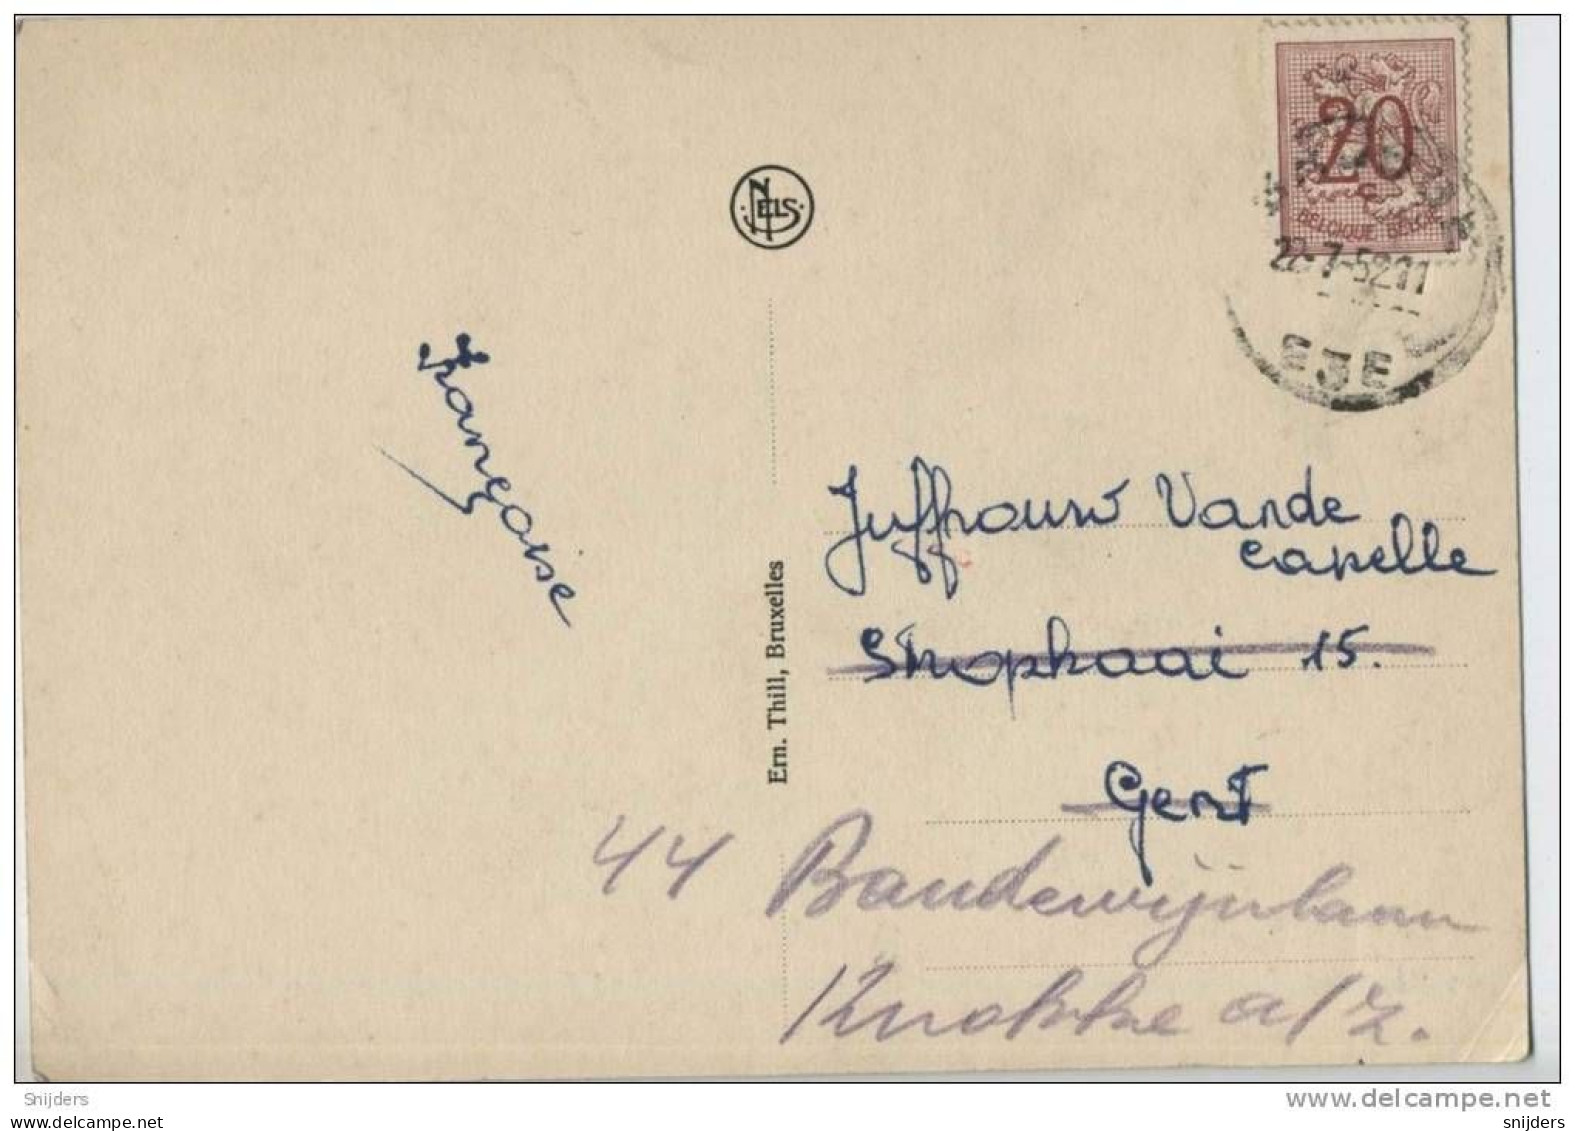 20
c
BELGIQUE BELGIE
22-7-52 11
NELS
Françoise
Ern. Thill, Bruxelles
Juffrouw Vande
Capelle
Stropkaai 15.
Gent
44 Boudewijnlaan
Knokke a/z.
Snijders
delcampe.net
snijders